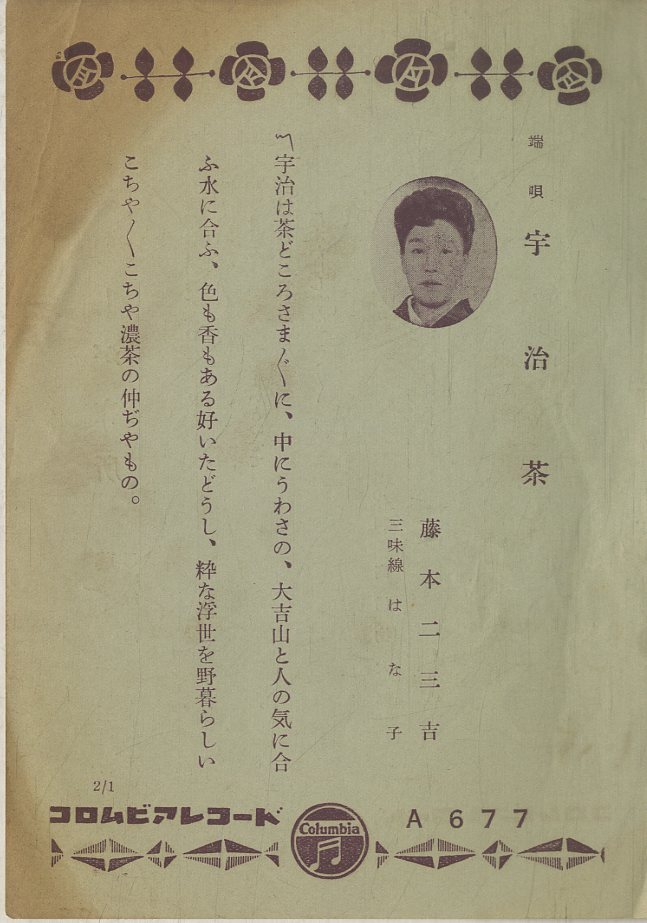 端唄 宇治茶
藤本二三吉
三味線 はな子
〽宇治は茶どころさま〴〵に、中にうわさの、大吉山と人の気に合
ふ水に合ふ、色も香もある好いたどうし、粋な浮世を野暮らしい
こちや〳〵こちや濃茶の仲ぢやもの。
2/1
コロムビアレコード
Columbia
A 677